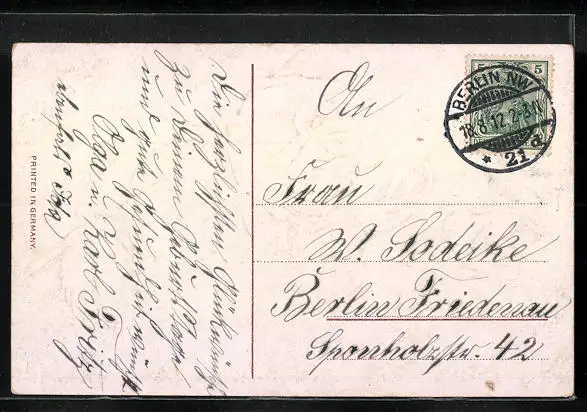 Die herzlichsten Glückwünsche
zu Deinem Geburtstage
und gute Gesundheit wünscht
Olga u. Karl Fritz
PRINTED IN GERMANY.
An
Frau
W. Sodeike
Berlin Friedenau
Sponholzstr. 42
5 5
BERLIN NW
18.8.12.2-3N.
* 21 a